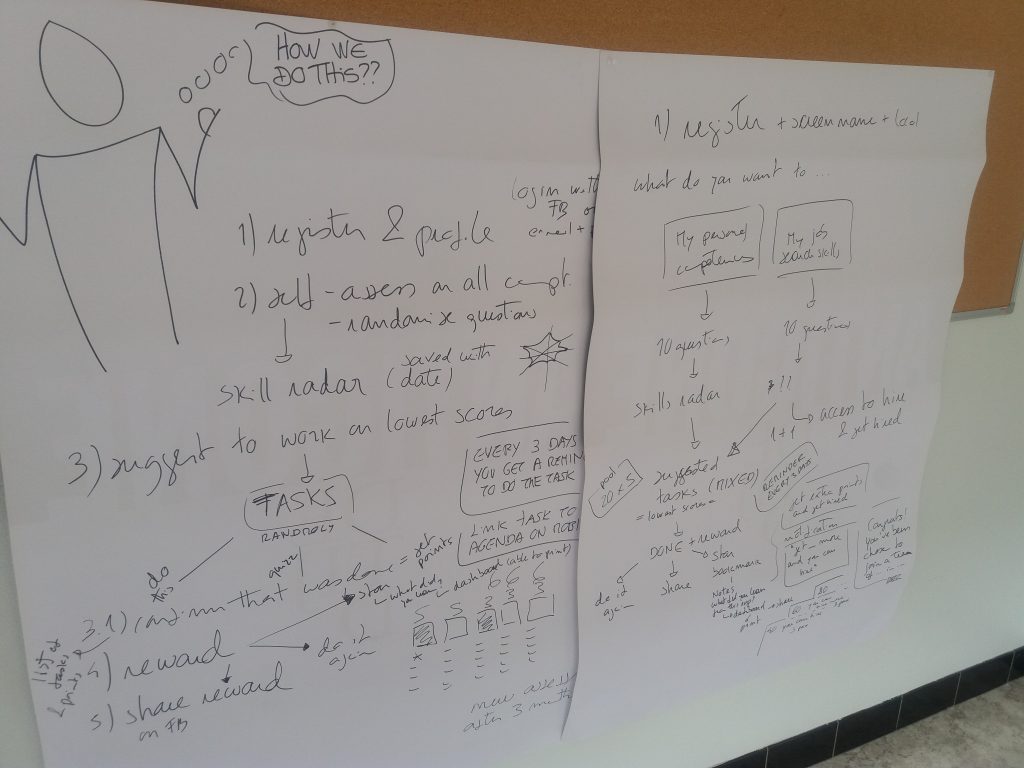 HOW WE
DO THIS??
1) register & profile
login with
FB or
email +
2) self-assess on all compt.
- randomise questions
skill radar (saved with
date)
3) suggest to work on lowest scores
TASKS
RANDMOLY
EVERY 3 DAYS
YOU GET A REMIN
TO DO THE TASK
LINK TASK TO
AGENDA ON
do
this
quizz
3.1) confirm that was done = get
points
star
what did
you learn
dashboard (able to print)
4) reward
do it
again
5) share reward
on FB
list of
tasks
& points
S S 6 6 6
new assess
after 3 month
1) register + screen name + local
What do you want to ...
My personal
competences
My job
search skills
10 questions
10 questions
skills radar
!!
1+1
access to hire
& get hired
pool
20 x 5
suggested
tasks (MIXED)
= lowest scores =
REMINDER
EVERY 3 DAYS
get extra points
and get hired
DONE + reward
star
do it
again
share
bookmark
notification
"get more
and you can
hire"
Congrats!
you've been
chose to
join a team
of ...
Notes
what did you learn
from this step?
dashboard - share
print
60
80